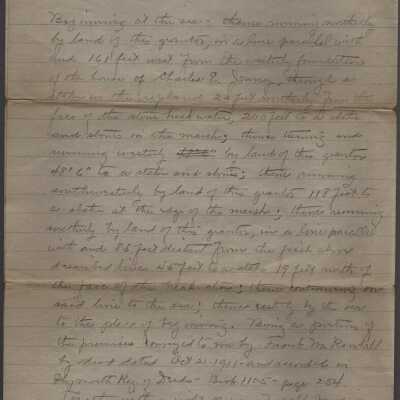 Beginning at the sea; thence running northerly
by land of this grantor, in a line parallel with
and 161 feet west from the westerly foundation
of the house of Charles E. through a
stake in the upland 24 feet northerly from the
face of the stone breakwater, 200 feet to a stake
and stones on the marsh; thence turning and
running westerly by land of this grantor
48' 6" to a stake and stones; thence running
southwesterly by land of this grantor 118 feet to
a stake at the edge of the marsh; thence running
southerly by land of this grantor, in a line parallel
with and 85 feet distant from the first above
described line, 45 feet to a stake 19 feet north of
the face of the breakwater; thence continuing on
said line to the sea; thence easterly by the sea
to the place of beginning. Being a portion of
the premises conveyed to me by Frank M.
by deed dated Oct 21-1911 and recorded in
Plymouth Reg. of Deeds - Book 1105 - page 254